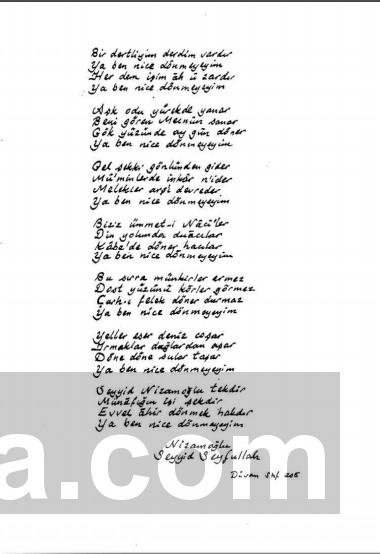 Bir dertliyim derdim vardır
Ya ben nice dönmeyeyim
Her dem işim âh ü zardır
Ya ben nice dönmeyeyim
Aşk odu yürekde yanar
Beni gören Mecnûn sanar
Gök yüzünde ay gün döner
Ya ben nice dönmeyeyim
Gel şekki gönlünden gider
Mü'minlerde inkâr n'ider
Melekler arş'ı devreder
Ya ben nice dönmeyeyim
Biziz ümmet-i Nâcî'ler
Din yolunda duâcılar
Kâbe'de döner hacılar
Ya ben nice dönmeyeyim
Bu sırra münkirler ermez
Dost yüzünü körler görmez
Çarh-ı felek döner durmaz
Ya ben nice dönmeyeyim
Yeller eser deniz coşar
Irmaklar dağlardan aşar
Döne döne sular taşar
Ya ben nice dönmeyeyim
Seyyid Nizamoğlu tekdir
Münâfığın işi şekdir
Evvel âhir dönmek hakdır
Ya ben nice dönmeyeyim
Nizamoğlu
Seyyid Seyfullah
Divan Shf. 205
a.com